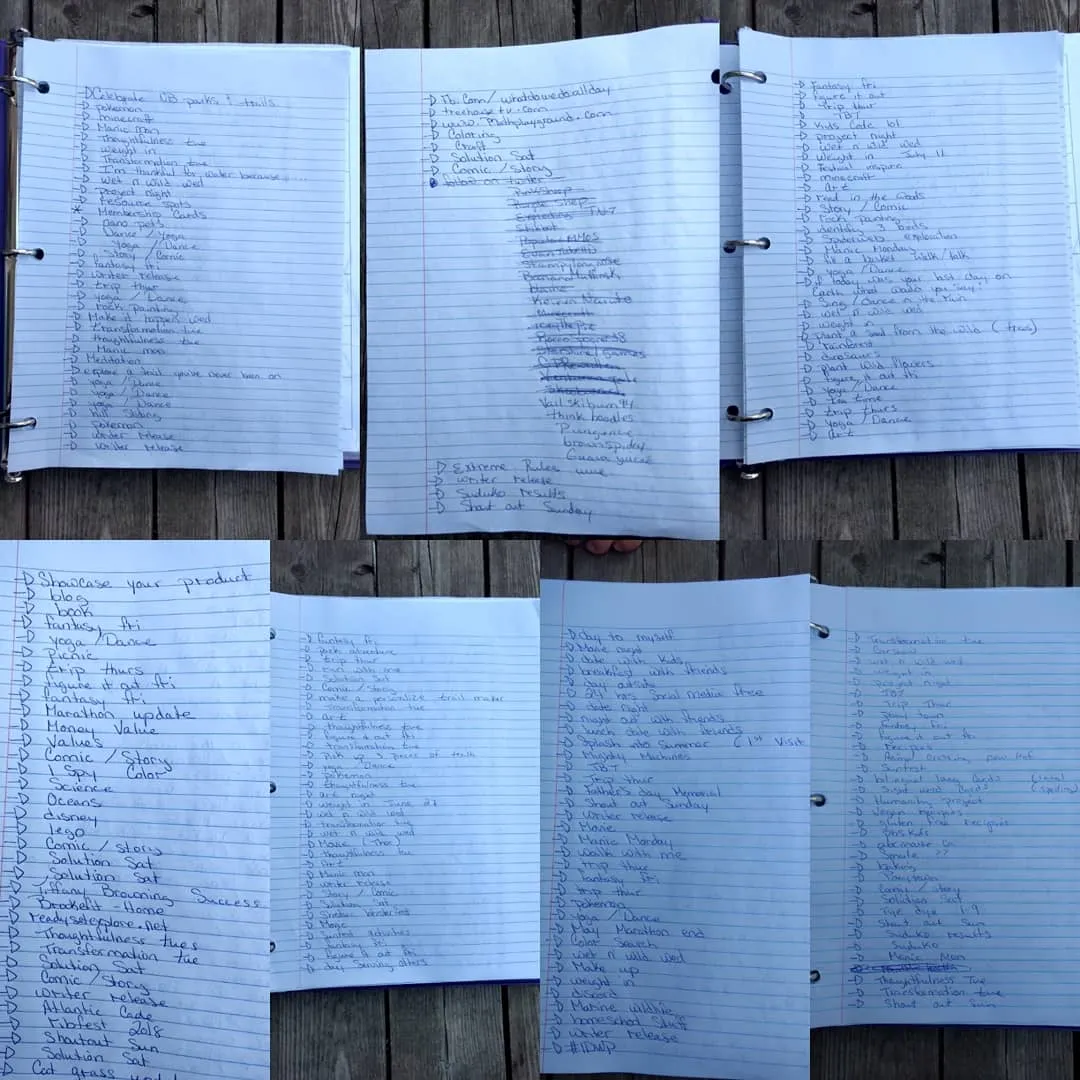 Celebrate NB parks & trails
pokemon
minecraft
Manic mon
Thoughtfulness tue
weight in
Transformation tue
I'm thankful for water because....
wet n wild wed
project night
resource spots
Membership Cards
pets
Dance / Yoga
Yoga / Dance
Story / Comic
fantasy fri
writer release
trip thur
yoga / Dance
rock painting
Make it happen wed
transformation tue
thoughtfulness tue
Manic mon
Meditation
explore a trail you've never been on
yoga / Dance
yoga / Dance
yoga / Dance
hill sliding
pokemon
writer release
writer release
fb.com/whatdowedoallday
treehousetv.com
www.Mathplayground.com
Coloring
Craft
Solution Sat
Comic / Story
on twitter
Purple Shep
Exploding TNT
Popular MMOS
Stampylongnose
Vailskibum94
think noodles
Pungence
brownspiday
Extreme Rules
writer release
Suduko results
Shout out Sunday
fantasy fri
figure it out
Trip thur
TBT
Kids Code lol
project night
wet n wild wed
Weight in July 11
Festival inspire
minecraft
art
read in the woods
Story / Comic
rock painting
identify 3 birds
Spiderweb exploration
Manic Monday
fit a basket walk/talk
yoga / Dance
if today was your last day on
Earth what would you say?
Sing / Dance n the rain
wet n wild wed
weight in
plant a seed from the wild (tree)
rainforest
dinosaurs
plant wild flowers
figure it out fri
Yoga / Dance
Tea time
trip thurs
yoga / Dance
art
Showcase your product
blog
book
fantasy fri
yoga / Dance
Picnic
trip thurs
figure it out fri
fantasy fri
Marathon update
Money Value
Values
Comic / Story
I Spy Color
Science
Oceans
disney
lego
Comic / Story
Solution Sat
Solution Sat
Tiffany Browning Success
Brookefit - Home
readysetexplore.net
Thoughtfulness tues
Transformation tue
Solution Sat
Comic / Story
writer release
Atlantic Cade
Fibfest 2018
Shoutout Sun
Solution Sat
Cat grass
fantasy fri
park adventure
trip thur
run with me
Solution Sat
Comic / Story
make a personalize trail maker
transformation tue
art
thoughtfulness tue
figure it out fri
transformation tue
pick up 3 pieces of trash
yoga / Dance
pokemon
thoughtfulness tue
art night
weight in June 27
wet n wild wed
transformation tue
wet n wild wed
Movie (Thor)
thoughtfulness tue
Art
Manic mon
writer release
Story / Comic
Solution Sat
Movie
Sunted activities
fantasy fri
figure it out fri
day serving others
day to myself
Movie night
date with kids
breakfast with friends
day outside
24 hrs Social media free
date night
night out with friends
lunch date with friends
Splash into Summer (1st Visit
Mighty Machines
TBT
Trip thur
Father's day Memorial
Shout out Sunday
writer release
Movie
Manic Monday
walk with me
trip thur
fantasy fri
trip thur
pokemon
yoga / Dance
May Marathon end
Color Search
wet n wild wed
Make up
weight in
disord
Marine wildlife
homeschool stuff
writer release
#IDWP
Transformation tue
wet n wild wed
weight in
project night
TBT
Trip Thur
figure it out fri
Recipes
Sunfish
Sight word Cards (spelling)
Humanity project
Vegan recipes
gluten free recipes
pbs kids
baking
Comic / story
Solution Sat
Tye dye
Shout out Sun
Suduko results
Suduko
Manic Mon
Thoughtfulness Tue
Transformation tue
Shout out Sun